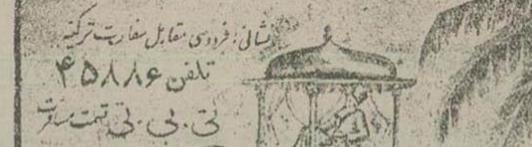 نشانی: فردوسی مقابل سفارت ترکیه
تلفن ۴۵۸۸۶
تی.بی.تی قسمت مسافرت